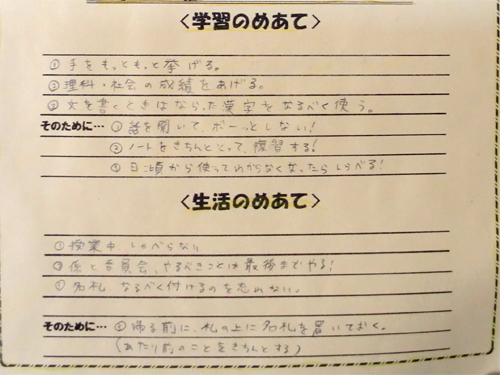 ＜学習のめあて＞
①手をもっともっと挙げる。
②理科・社会の成績をあげる。
③文を書くときはならった漢字をなるべく使う。
そのために… ①話を聞いて、ボーっとしない!
②ノートをきちんととって、復習する!
③日頃から使ってわからなくなったらしらべる!
＜生活のめあて＞
①授業中 しゃべらない
②係と委員会、やるべきことは最後までやる!
③名札 なるべく付けるのを忘れない。
そのために… 帰る前に、札の上に名札を置いておく。
(あたり前のことをきちんとする)